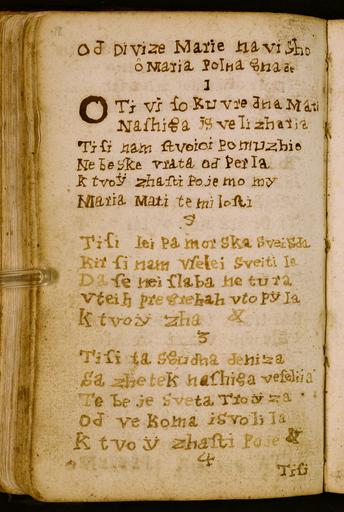 Od Divize Marie na vi Sho
ô Maria Polna gnade
1
O Ti vi so Ku vre dna Mati
Nashiga is ve li zharia
Ti si nam stvoioi Po muzhio
Ne be ske vrata od Per la
K tvoÿ zhasti Poje mo my
Maria Mati te mi losti
2
Ti si lei Pa mor ska Svei sda
Kir si nam vselei Sveiti la
Da se nei slaba ne tu ra
v teih pre grehah vto pÿ la
K tvoÿ zha &
3
Ti si ta Sgudna deniza
Sa zhe tek nashiga veselia
Te be je Sveta Troÿ za
Od ve Koma isvo li la
K tvo ÿ zhasti Poje &
4
Ti si